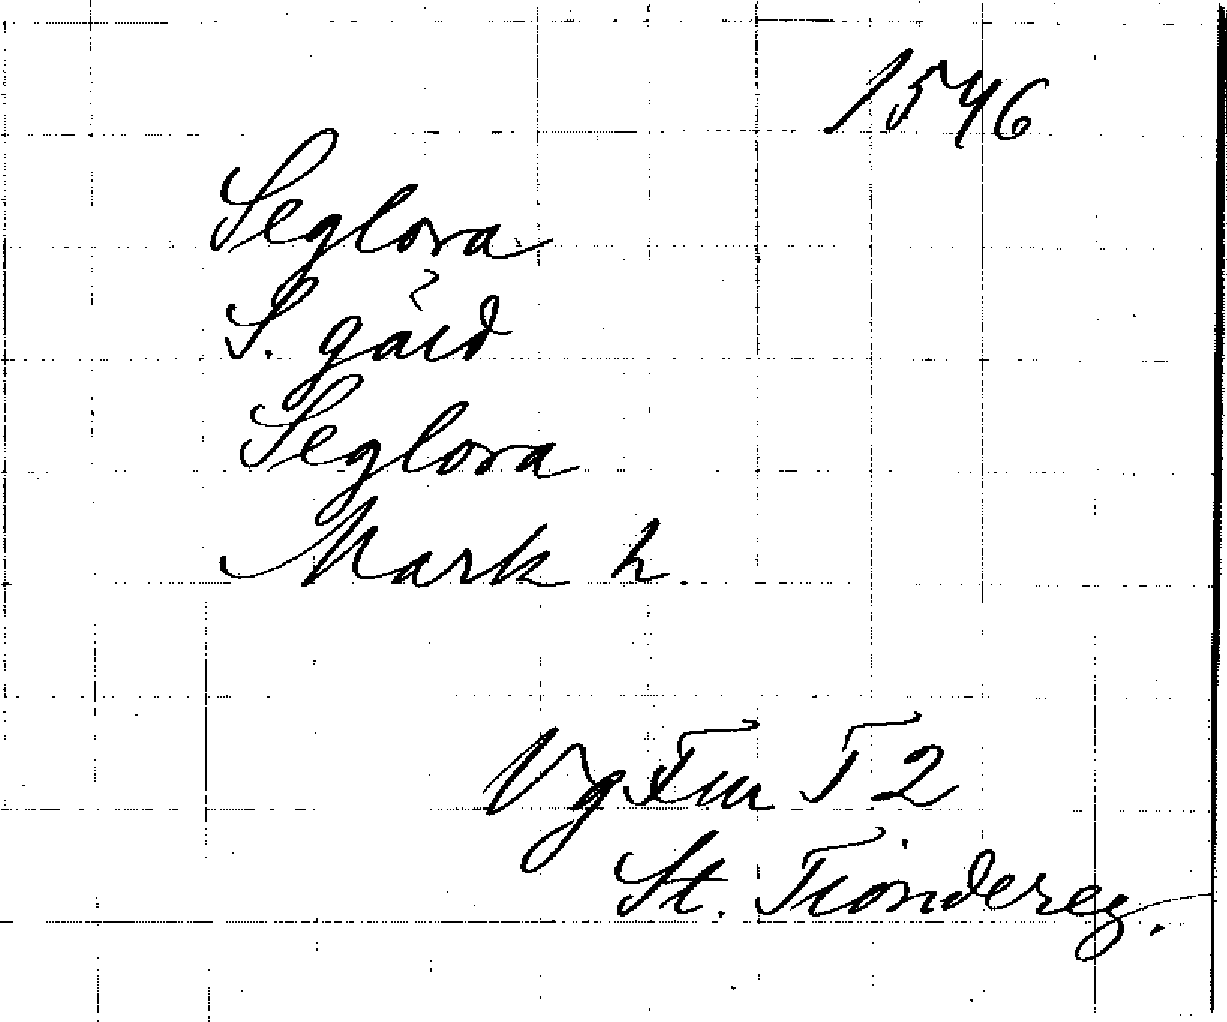 1546
Seglora
S. gård
Seglora
Mark h.
Vg Fur T 2
St. Tiondereg.